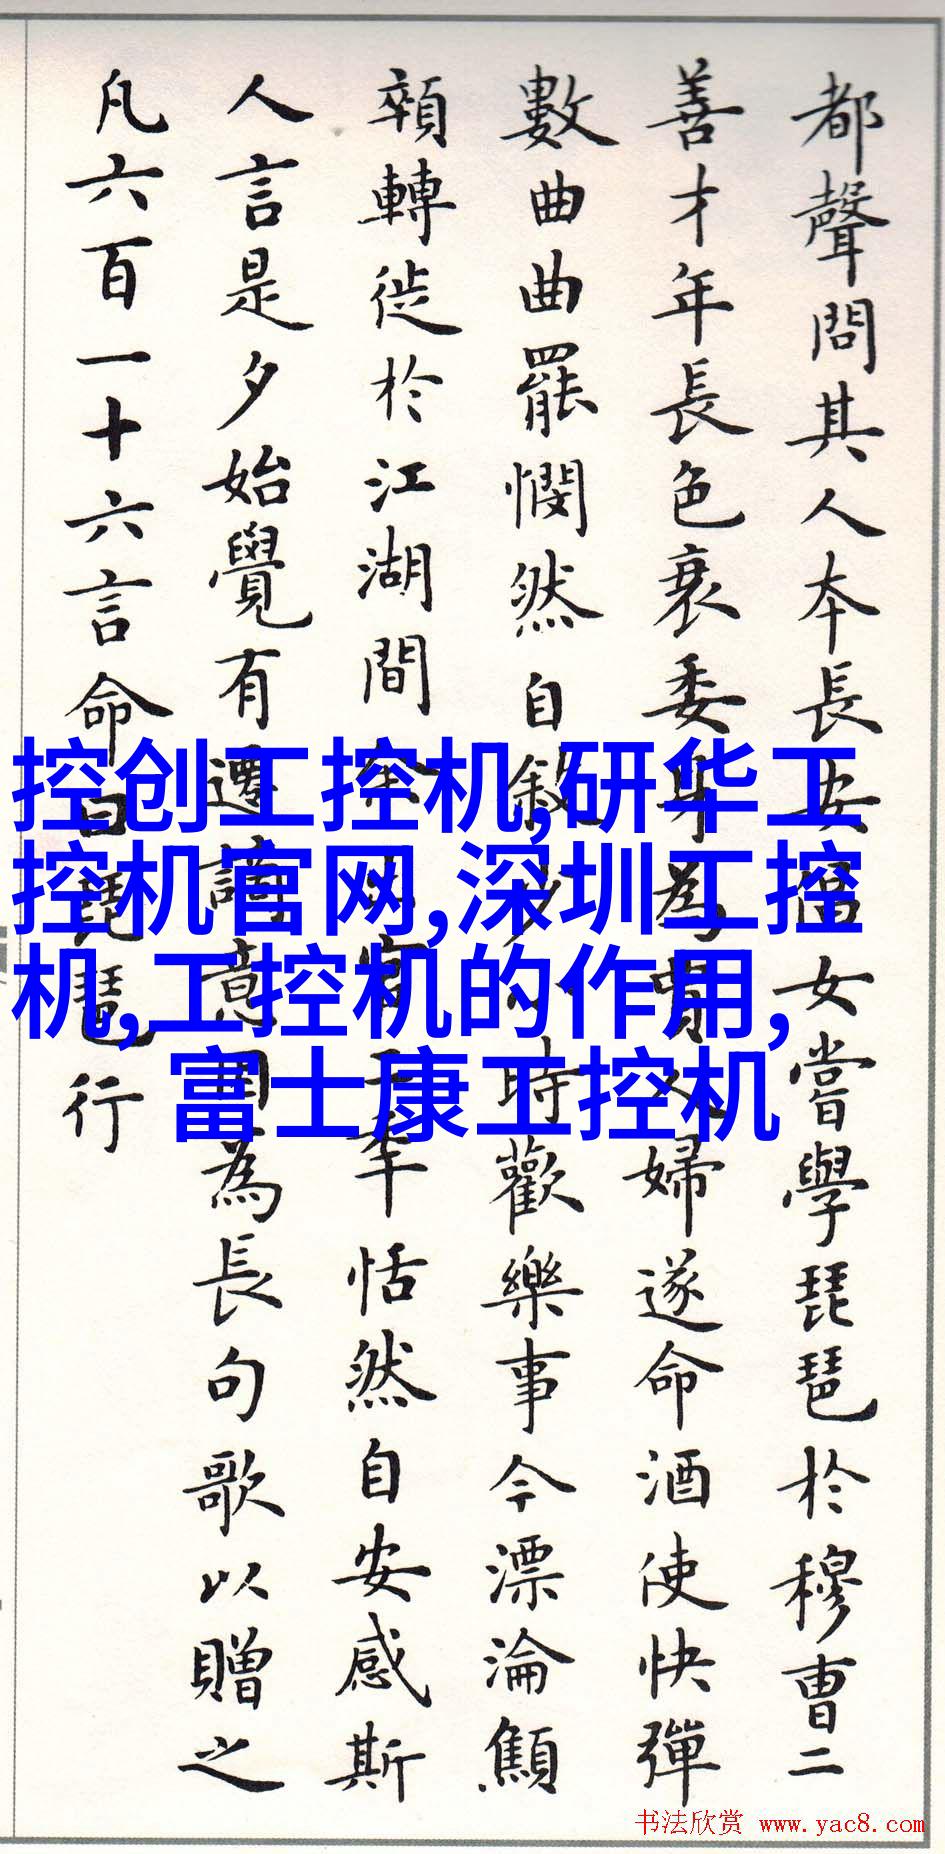 都聲問其人本長安倡女嘗學琵琶於穆曹二
善才年長色衰委身為賈人婦遂命酒使快彈
數曲曲罷憫然自敘少小時歡樂事今漂淪顦
顇轉徙於江湖間余出官二年恬然自安感斯
人言是夕始覺有遷謫意因為長句歌以贈之
凡六百一十六言命曰琵琶行
控创工控机,研华工
控机官网,深圳工控
机,工控机的作用,
富士康工控机
书法欣赏 www.yac8.com